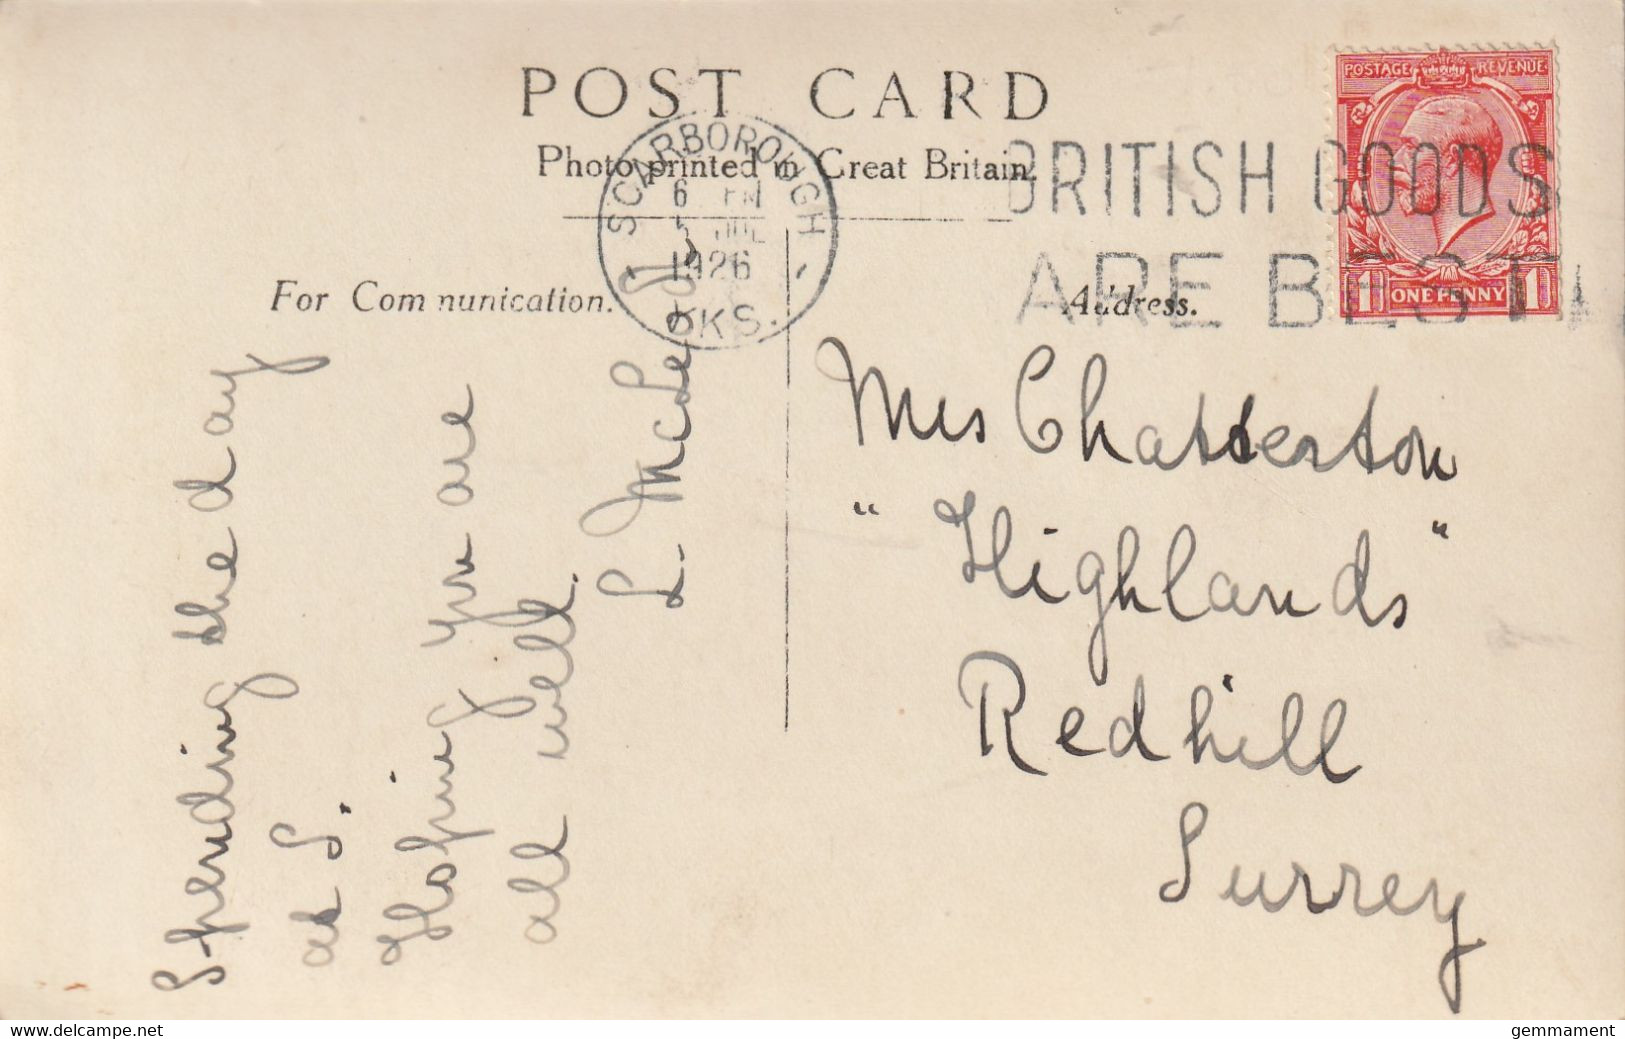 POST CARD
Photo printed in Great Britain.
SCARBOROUGH
6 PM
5 JUL
1926
YKS.
BRITISH GOODS
ARE BEST
POSTAGE REVENUE
1 ONE PENNY 1
For Communication.
Address.
Spending the day
at S.
Hoping you are
all well.
L. McLeod.
Mrs Chatterton
"Highlands"
Redhill
Surrey
www.delcampe.net
gemmament